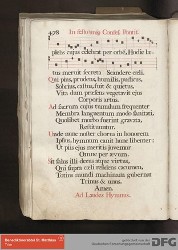 408 In Festo unius Confeß. Pontif.
plebs cujus celebrat per orbē, Hodie læ-
tus meruit secreta Scandere cœli.
Qui pius, prudens, humilis, pudicus,
Sobrius, castus, fuit & quietus,
Vita dum præsens vegetavit ejus
Corporis artus.
Ad sacrum cujus tumulum frequenter
Membra languentum modo sanitati,
Quolibet morbo fuerint gravata,
Restituuntur.
Unde nunc noster chorus in honorem
Ipsius, hymnum canit hunc libenter:
Ut piis ejus meritis juvemur
Omne per ævum.
Sit salus illi decus atque virtus,
Qui supra cœli residens cacumen,
Totius mundi machinam gubernat
Trinus & unus.
Amen.
Ad Laudes Hymnus.
Benediktinerabtei St. Matthias
Trier
DFG